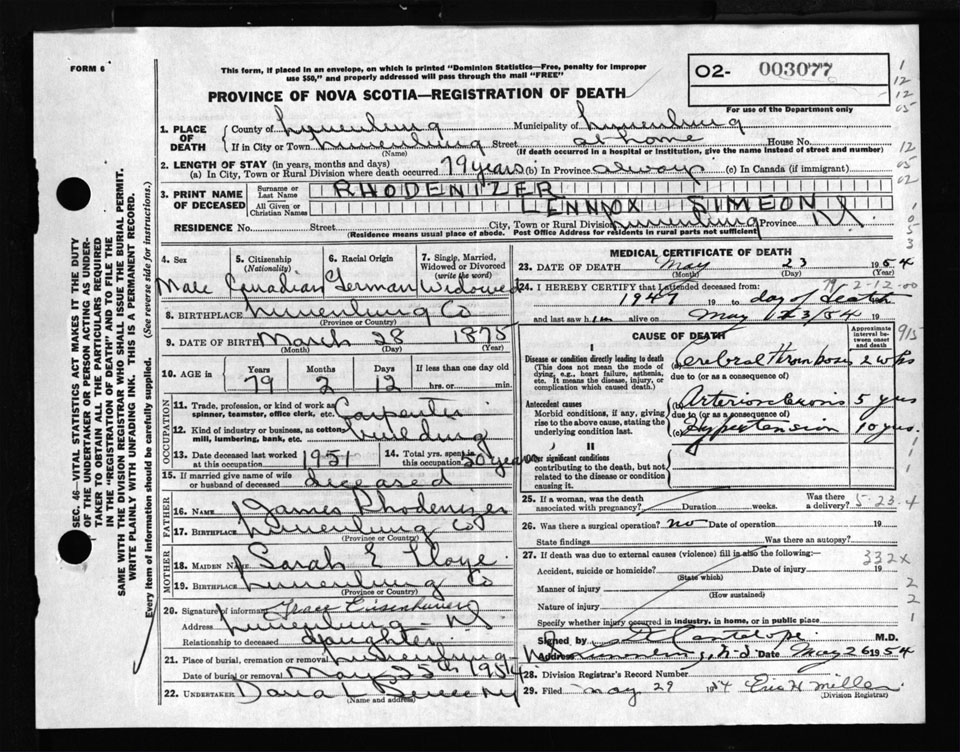 FORM 6
This form, if placed in an envelope, on which is printed "Dominion Statistics—Free, penalty for improper
use $50," and properly addressed will pass through the mail "FREE"
02- 003077
PROVINCE OF NOVA SCOTIA—REGISTRATION OF DEATH
For use of the Department only
1. PLACE OF DEATH { County of Lunenburg Municipality of Lunenburg
If in City or Town Lunenburg Street at home House No.
(Name) (If death occurred in a hospital or institution, give the name instead of street and number)
2. LENGTH OF STAY (in years, months and days)
(a) In City, Town or Rural Division where death occurred 79 years (b) In Province always (c) In Canada (if immigrant)
3. PRINT NAME OF DECEASED { Surname or Last Name RHODENIZER
All Given or Christian Names LENNOX SIMEON
RESIDENCE No. Street City, Town or Rural Division Lunenburg Province N.S.
(Residence means usual place of abode. Post Office Address for residents in rural parts not sufficient)
4. Sex Male
5. Citizenship (Nationality) Canadian
6. Racial Origin German
7. Single, Married, Widowed or Divorced (write the word) Widowed
8. BIRTHPLACE Lunenburg Co
(Province or Country)
9. DATE OF BIRTH March 28 1875
(Month) (Day) (Year)
10. AGE in { Years Months Days If less than one day
79 2 12 hrs. or min.
OCCUPATION
11. Trade, profession, or kind of work as spinner, teamster, office clerk, etc. Carpenter
12. Kind of industry or business, as cotton mill, lumbering, bank, etc. building
13. Date deceased last worked at this occupation 1951
14. Total yrs. spent in this occupation 50 years
15. If married give name of wife or husband of deceased deceased
FATHER
16. Name James Rhodenizer
17. Birthplace Lunenburg Co
(Province or Country)
MOTHER
18. MAIDEN NAME Sarah E
19. BIRTHPLACE Lunenburg Co
(Province or Country)
20. Signature of informant Grace Eisenhauer
Address Lunenburg N.S.
Relationship to deceased daughter
21. Place of burial, cremation or removal Lunenburg
Date of burial or removal May 25th 1954
22. UNDERTAKER Dana L
(Name and address)
MEDICAL CERTIFICATE OF DEATH
23. DATE OF DEATH May 23 1954
(Month) (Day) (Year)
24. I HEREBY CERTIFY that I attended deceased from: 79-2-12-00
1947 19 to day of death
and last saw him alive on May 23/54 19
CAUSE OF DEATH
Approximate interval between onset and death
915
I
Disease or condition directly leading to death
(This does not mean the mode of dying, e.g., heart failure, asthenia, etc. It means the disease, injury, or complication which caused death.)
(a) Cerebral Thrombosis 2 wks
due to (or as a consequence of)
Antecedent causes
Morbid conditions, if any, giving rise to the above cause, stating the underlying condition last.
(b) Arteriosclerosis 5 yrs
due to (or as a consequence of)
(c) Hypertension 10 yrs.
II
Other significant conditions
contributing to the death, but not related to the disease or condition causing it.
25. If a woman, was the death associated with pregnancy? Duration weeks. Was there a delivery? 5-23-4
26. Was there a surgical operation? no Date of operation 19
State findings Was there an autopsy?
27. If death was due to external causes (violence) fill in also the following: 332x
Accident, suicide or homicide? Date of injury 19
(State which)
Manner of injury
(How sustained)
Nature of injury
Specify whether injury occurred in industry, in home, or in public place
Signed by M.D.
Address Date May 26 1954
28. Division Registrar's Record Number
29. Filed May 29 1954 Eric H Miller
(Division Registrar)
SEC. 46—VITAL STATISTICS ACT MAKES IT THE DUTY
OF THE UNDERTAKER OR PERSON ACTING AS UNDER-
TAKER TO OBTAIN ALL THE PARTICULARS REQUIRED
IN THE "REGISTRATION OF DEATH" AND TO FILE THE
SAME WITH THE DIVISION REGISTRAR WHO SHALL ISSUE THE BURIAL PERMIT.
WRITE PLAINLY WITH UNFADING INK. THIS IS A PERMANENT RECORD.
Every item of information should be carefully supplied. (See reverse side for instructions.)
1
12
12
05
12
05
02
1
0
5
3
1
1
1
2
2
1